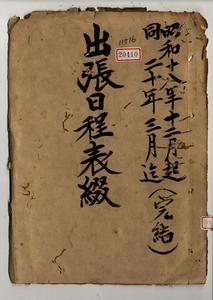 昭和十八年十二月起
同二十年三月迄(完結)
出張日程表綴
11516
20410